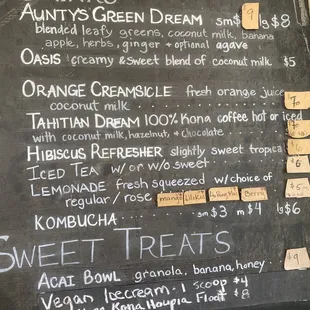 AUNTYS GREEN DREAM sm$ 9 lg $8
blended leafy greens, coconut milk, banana
apple, herbs, ginger + optional agave
OASIS creamy & sweet blend of coconut milk $5
ORANGE CREAMSICLE fresh orange juice
coconut milk 7
TAHITIAN DREAM 100% Kona coffee hot or iced
with coconut milk, hazelnut, + chocolate
HIBISCUS REFRESHER slightly sweet tropical 6
ICED TEA w/ or w/o sweet 6
LEMONADE fresh squeezed w/choice of
regular / rose mango Lilikoi Berry
KOMBUCHA sm $3 m $4 lg $6
SWEET TREATS
ACAI BOWL granola, banana, honey 9
Vegan Icecream - 1 scoop $4
Kona Houpia Float $8